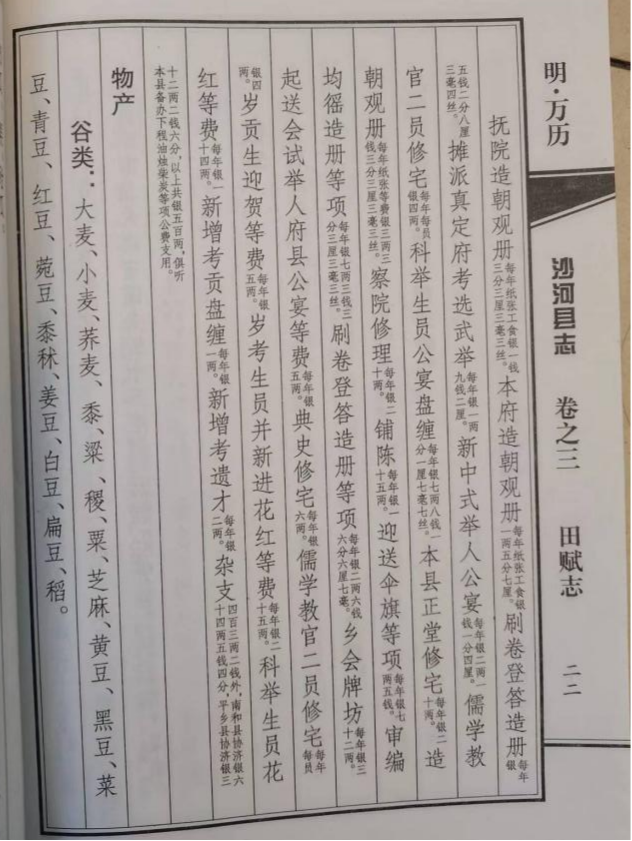 明·万历
沙河县志 卷之三 田赋志 二二
抚院造朝观册每年纸张工食银一钱三分三厘三毫三丝。本府造朝观册每年纸张工食银一两五分七厘。刷卷登答造册每年银
五钱二分八厘三毫四丝。摊派真定府考选武举每年银一两九钱二厘。新中式举人公宴每年银二两一钱一分四厘。儒学教
官二员修宅每年每员银四两。科举生员公宴盘缠每年银七两八钱一分一厘七毫七丝。本县正堂修宅每年银二十两。造
朝观册每年纸张等费银三两三钱三分三厘三毫三丝。察院修理每年银二十两。铺陈每年银一十五两。迎送伞旗等项每年银七两五钱。审编
均徭造册等项每年银七两三钱三分三厘三毫三丝。刷卷登答造册等项每年银二两六钱六分六厘七毫。乡会牌坊每年银三十二两。
起送会试举人府县公宴等费每年银五两。典史修宅每年银六两。儒学教官二员修宅每年每员
银四两。岁贡生迎贺等费每年银五两。岁考生员并新进花红等费每年银二十五两。科举生员花
红等费每年银一十四两。新增考贡盘缠每年银一两。新增考遗才每年银二两。杂支四百三两二钱外,南和县协济银六十四两五钱四分,平乡县协济银三
十二两二钱六分,以上共银五百两,俱听本县备办下程油烛柴炭等项公费支用。
物产
谷类：大麦、小麦、荞麦、黍、粱、稷、粟、芝麻、黄豆、黑豆、菜
豆、青豆、红豆、菀豆、黍秫、姜豆、白豆、扁豆、稻。